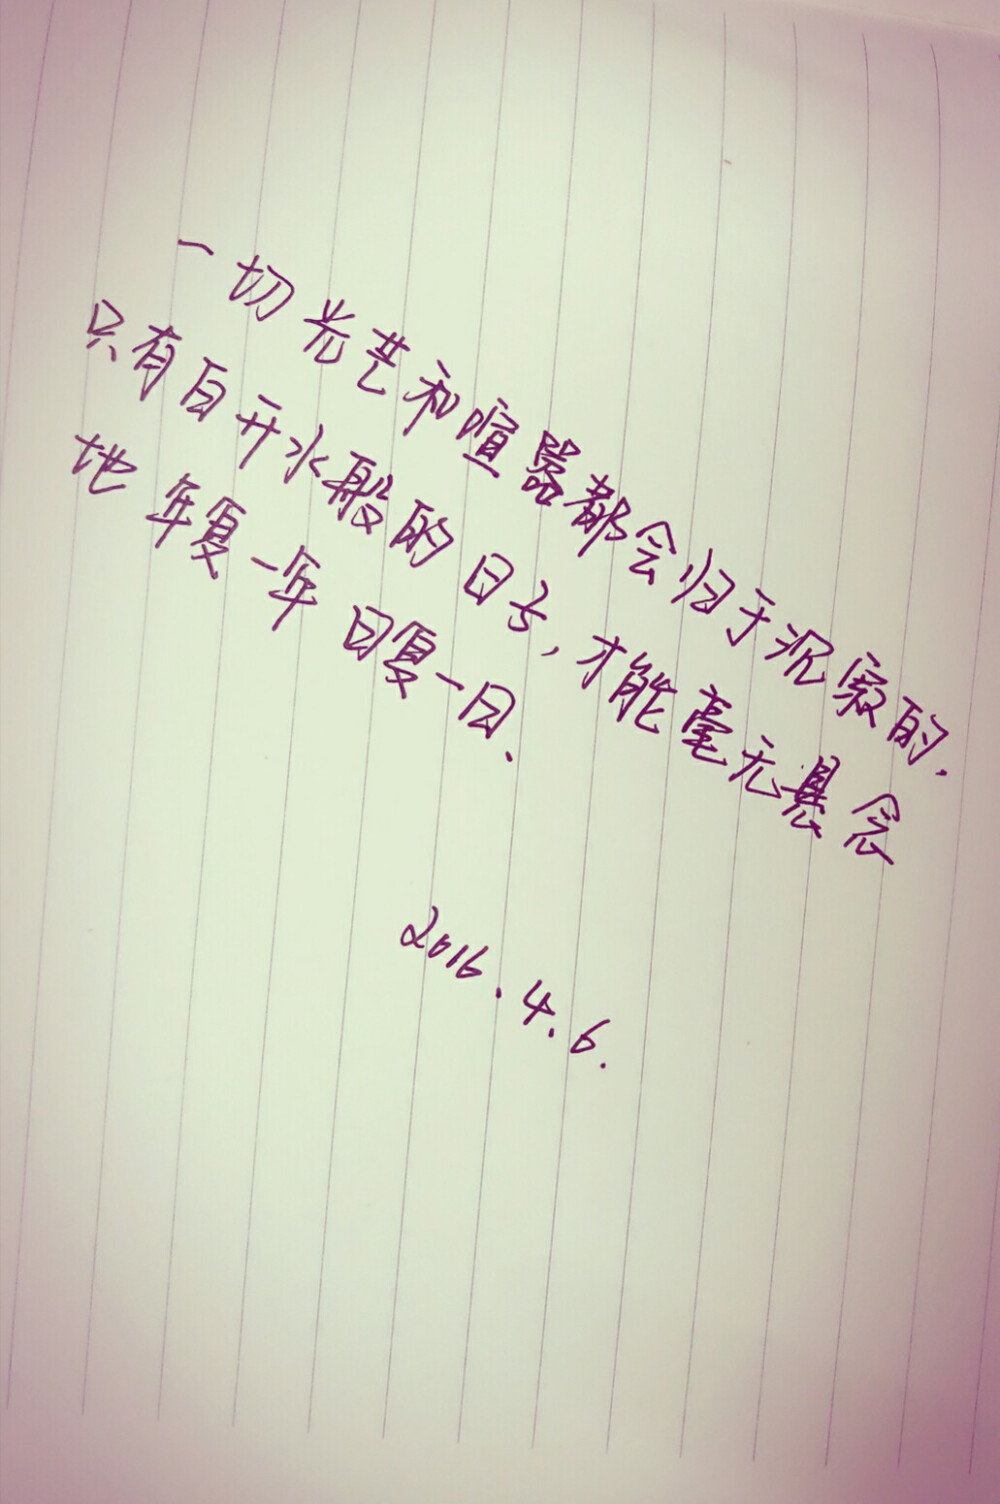 一切光芒和喧嚣都会归于沉寂的.
只有白开水般的日子,才能毫无悬念
地年复一年日复一日.
2016.4.6.